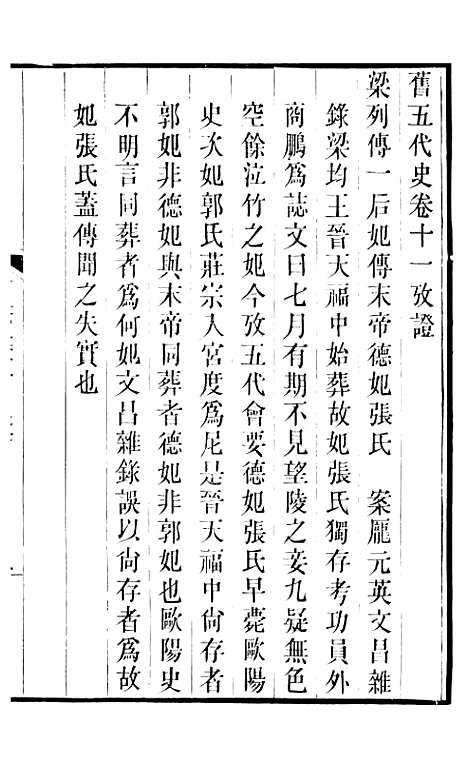 舊五代史卷十一攷證
梁列傳一后妃傳末帝德妃張氏　案龎元英文昌雜
錄梁均王晉天福中始葬故妃張氏獨存考功員外
商鵬爲誌文曰七月有期不見望陵之妾九疑無色
空餘泣竹之妃今攷五代會要德妃張氏早薨歐陽
史次妃郭氏莊宗入宮度爲尼是晉天福中尙存者
郭妃非德妃與末帝同葬者德妃非郭妃也歐陽史
不明言同葬者爲何妃文昌雜錄誤以尙存者爲故
妃張氏蓋傳聞之失實也